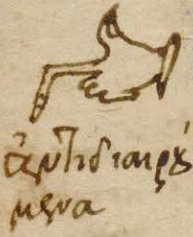 ἀντιδιαιρού
μενα